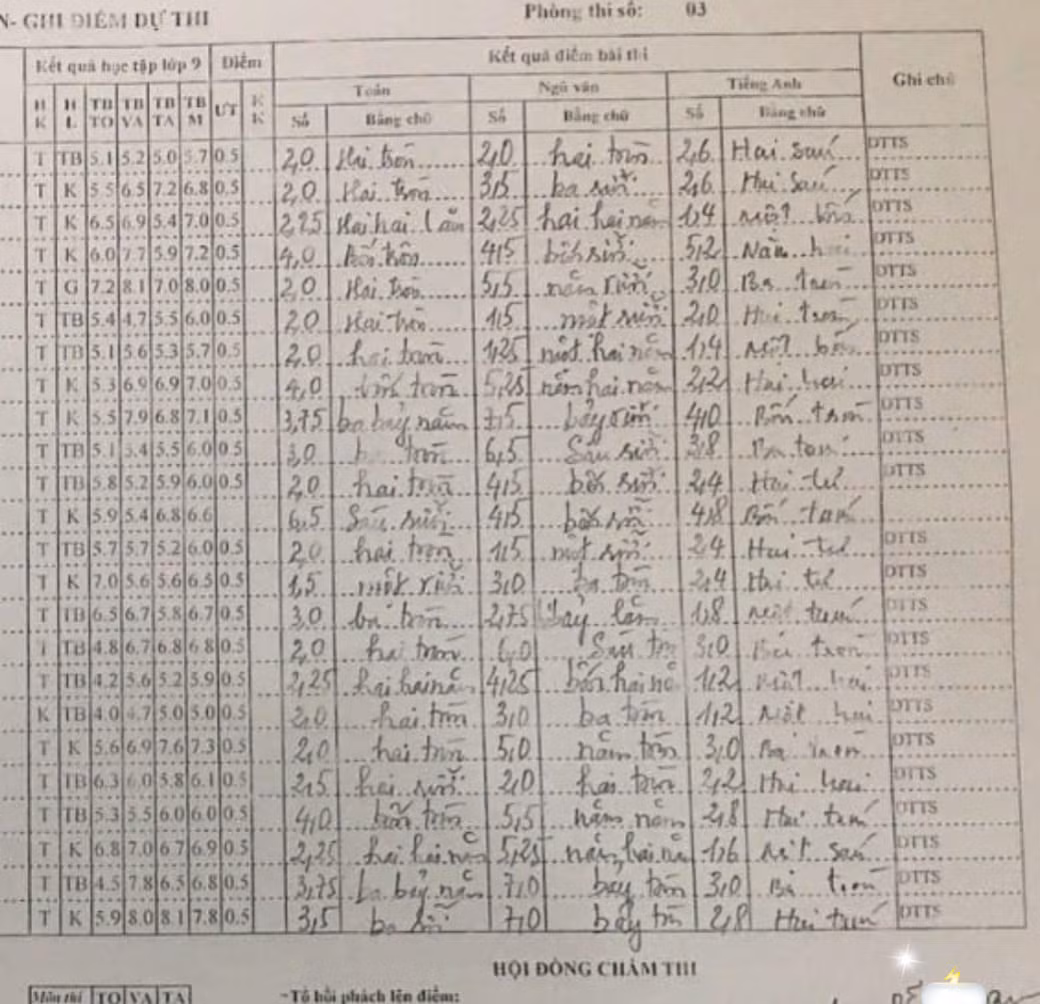 N- GHI ĐIỂM DỰ THI
Phòng thi số: 03
Kết quả học tập lớp 9 Điểm Kết quả điểm bài thi Ghi chú
Toán Ngữ văn Tiếng Anh
H K H L TB TO TB VA TB TA TB M ƯT K K Số Bằng chữ Số Bằng chữ Số Bằng chữ
T TB 5.1 5.2 5.0 5.7 0.5 2,0 Hai tròn 2,0 hai tròn 2,6 Hai sáu DTTS
T K 5.5 6.5 7.2 6.8 0.5 2,0 Hai tròn 3,5 ba rưỡi 2,6 Hai sáu DTTS
T K 6.5 6.9 5.4 7.0 0.5 2,25 Hai hai lăm 2,25 hai hai năm 1,4 Một bốn DTTS
T K 6.0 7.7 5.9 7.2 0.5 4,0 Bốn tròn 4,5 bốn rưỡi 5,2 Năm hai DTTS
T G 7.2 8.1 7.0 8.0 0.5 2,0 Hai tròn 5,5 năm rưỡi 3,0 Ba tròn DTTS
T TB 5.4 4.7 5.5 6.0 0.5 2,0 Hai tròn 1,5 một rưỡi 2,0 Hai tròn DTTS
T TB 5.1 5.6 5.3 5.7 0.5 2,0 hai tròn 1,25 một hai năm 1,4 Một bốn DTTS
T K 5.3 6.9 6.9 7.0 0.5 4,0 bốn tròn 5,25 năm hai năm 2,2 Hai hai DTTS
T K 5.5 7.9 6.8 7.1 0.5 3,75 ba bảy năm 7,5 bảy rưỡi 4,0 Bốn tròn DTTS
T TB 5.1 5.4 5.5 6.0 0.5 3,0 ba tròn 6,5 Sáu rưỡi 3,8 Ba tám DTTS
T TB 5.8 5.2 5.9 6.0 0.5 2,0 hai tròn 4,5 bốn rưỡi 2,4 Hai tư DTTS
T K 5.9 5.4 6.8 6.6 6,5 Sáu rưỡi 4,5 bốn rưỡi 4,8 Bốn tám
T TB 5.7 5.7 5.2 6.0 0.5 2,0 hai tròn 1,5 một rưỡi 2,4 Hai tư DTTS
T K 7.0 5.6 5.6 6.5 0.5 1,5 một rưỡi 3,0 ba tròn 2,4 Hai tư DTTS
T TB 6.5 6.7 5.8 6.7 0.5 3,0 ba tròn 2,75 bảy lăm 1,8 Một tám DTTS
T TB 4.8 6.7 6.8 6.8 0.5 2,0 hai tròn 6,0 Sáu tròn 3,0 Ba tròn DTTS
T TB 4.2 5.6 5.2 5.9 0.5 2,25 hai hai năm 4,25 bốn hai năm 1,2 Một hai DTTS
K TB 4.0 4.7 5.0 5.0 0.5 2,0 hai tròn 3,0 ba tròn 1,2 Một hai DTTS
T K 5.6 6.9 7.6 7.3 0.5 2,0 hai tròn 5,0 năm tròn 3,0 Ba tròn DTTS
T TB 6.3 6.0 5.8 6.1 0.5 2,5 hai rưỡi 2,0 hai tròn 2,2 Hai hai DTTS
T TB 5.3 5.5 6.0 6.0 0.5 4,0 bốn tròn 5,5 năm năm 2,8 Hai tám DTTS
T K 6.8 7.0 6.7 6.9 0.5 2,25 hai hai năm 5,25 năm hai năm 1,6 Một sáu DTTS
T TB 4.5 7.8 6.5 6.8 0.5 3,75 ba bảy năm 7,0 bảy tròn 3,0 Ba tròn DTTS
T K 5.9 8.0 8.1 7.8 0.5 3,5 ba rưỡi 7,0 bảy tròn 2,8 Hai tám DTTS
HỘI ĐỒNG CHẤM THI
Môn thi TO VA TA -Tổ hồi phách lên điểm: